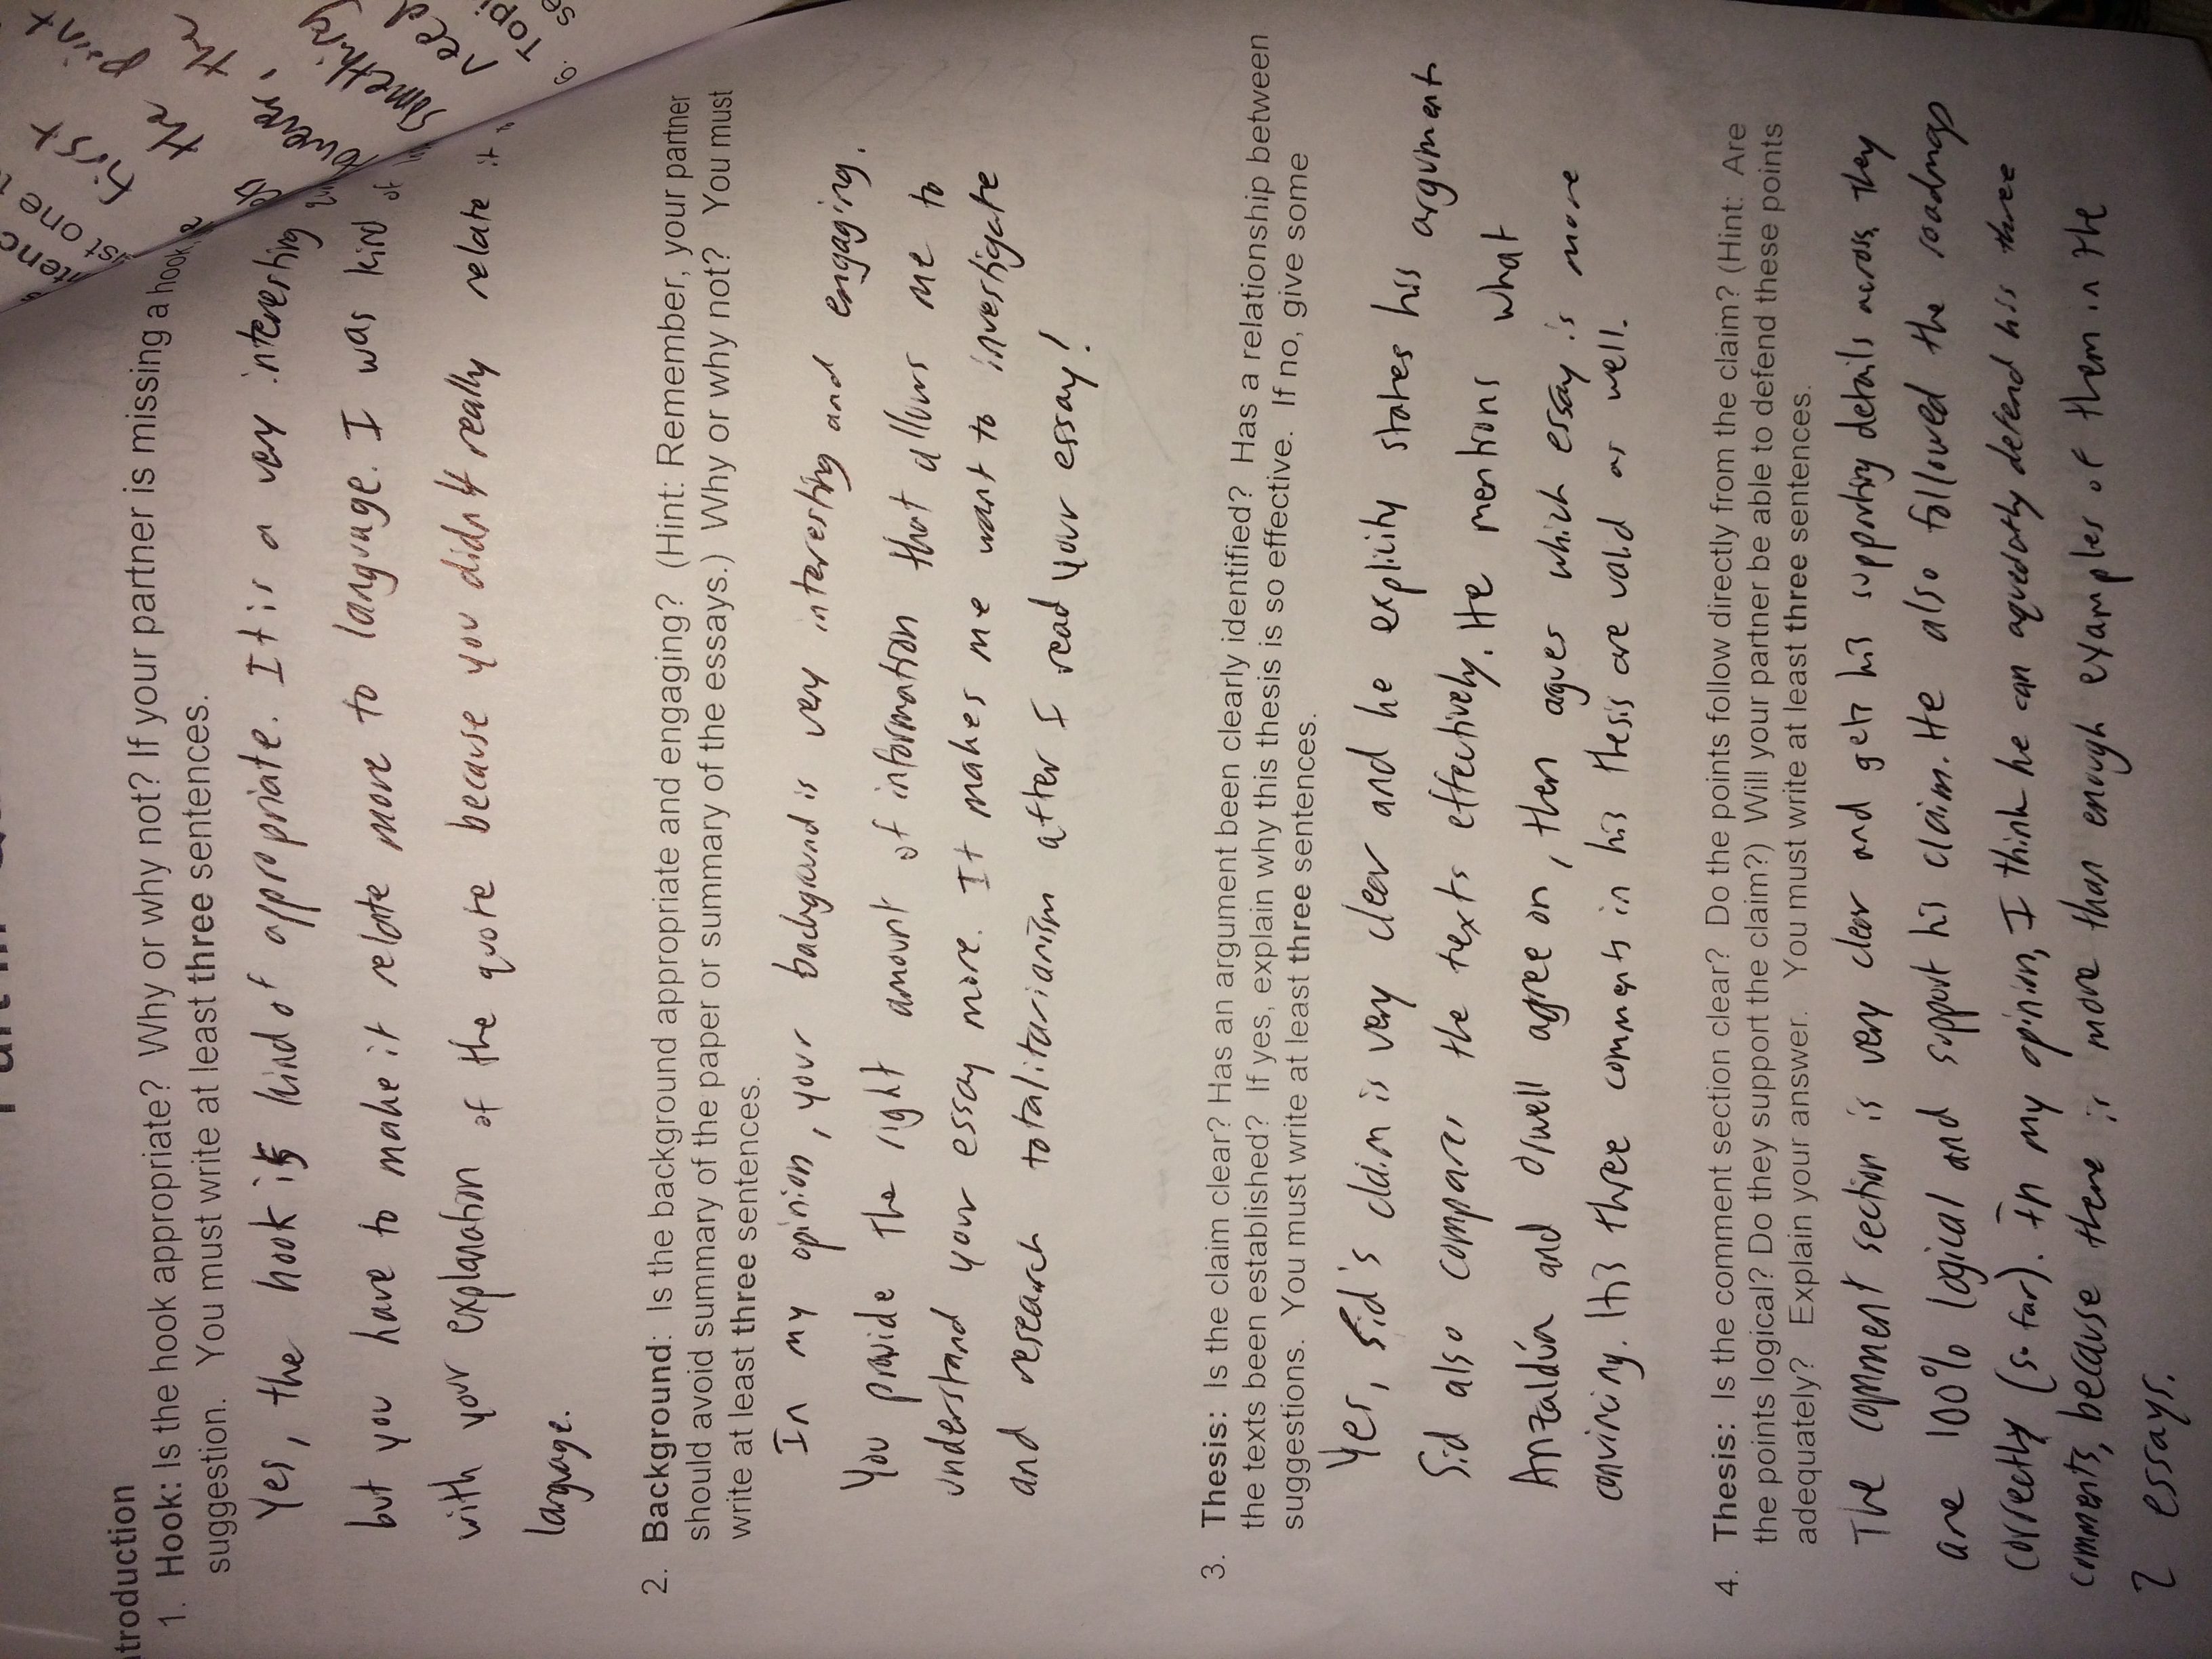 Part III
ntroduction
1. Hook: Is the hook appropriate? Why or why not? If your partner is missing a hook,
suggestion. You must write at least three sentences.
Yes, the hook is kind of appropriate. It is a very interesting
but you have to make it relate more to language. I was kind of
with your explanation of the quote because you didn't really relate it to
language.
2. Background: Is the background appropriate and engaging? (Hint: Remember, your partner
should avoid summary of the paper or summary of the essays.) Why or why not? You must
write at least three sentences.
In my opinion, your background is very interesting and engaging.
You provide the right amount of information that allows me to
understand your essay more. It makes me want to investigate
and research totalitarianism after I read your essay!
3. Thesis: Is the claim clear? Has an argument been clearly identified? Has a relationship between
the texts been established? If yes, explain why this thesis is so effective. If no, give some
suggestions. You must write at least three sentences.
Yes, Sid's claim is very clear and he explicity states his argument
Sid also compares the texts effectively. He mentions what
Anzaldúa and Orwell agree on, then agues which essay is more
convincing. His three comments in his thesis are valid as well.
4. Thesis: Is the comment section clear? Do the points follow directly from the claim? (Hint: Are
the points logical? Do they support the claim?) Will your partner be able to defend these points
adequately? Explain your answer. You must write at least three sentences.
The comment section is very clear and gets his supporting details across. They
are 100% logical and support his claim. He also followed the roadmap
correctly (so far). In my opinion, I think he can aquedatly defend his three
comments, because there is more than enough examples of them in the
2 essays.
st one
first
the point
however, the
something
need
6. Topi
se